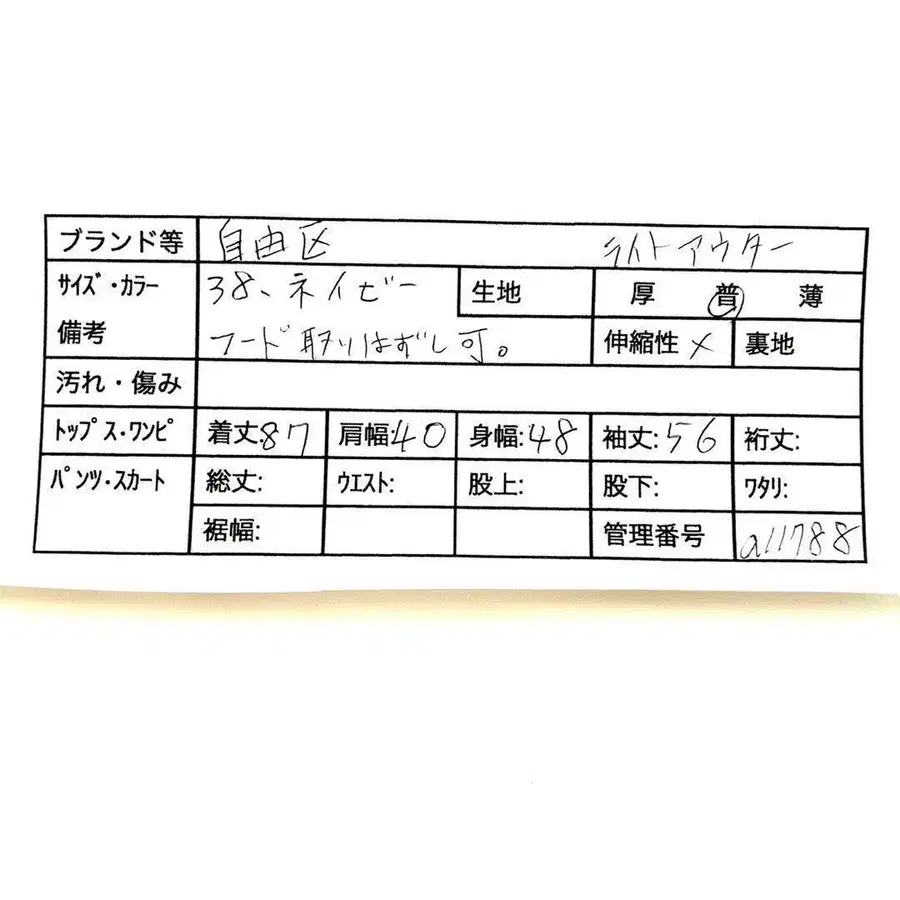 ブランド等 自由区 ライトアウター
サイズ・カラー 38、ネイビー 生地 厚 普 薄
備考 フード取りはずし可。 伸縮性 × 裏地
汚れ・傷み
トップス・ワンピ 着丈:87 肩幅:40 身幅:48 袖丈:56 裄丈:
パンツ・スカート 総丈: ウエスト: 股上: 股下: ワタリ:
裾幅: 管理番号 a11788